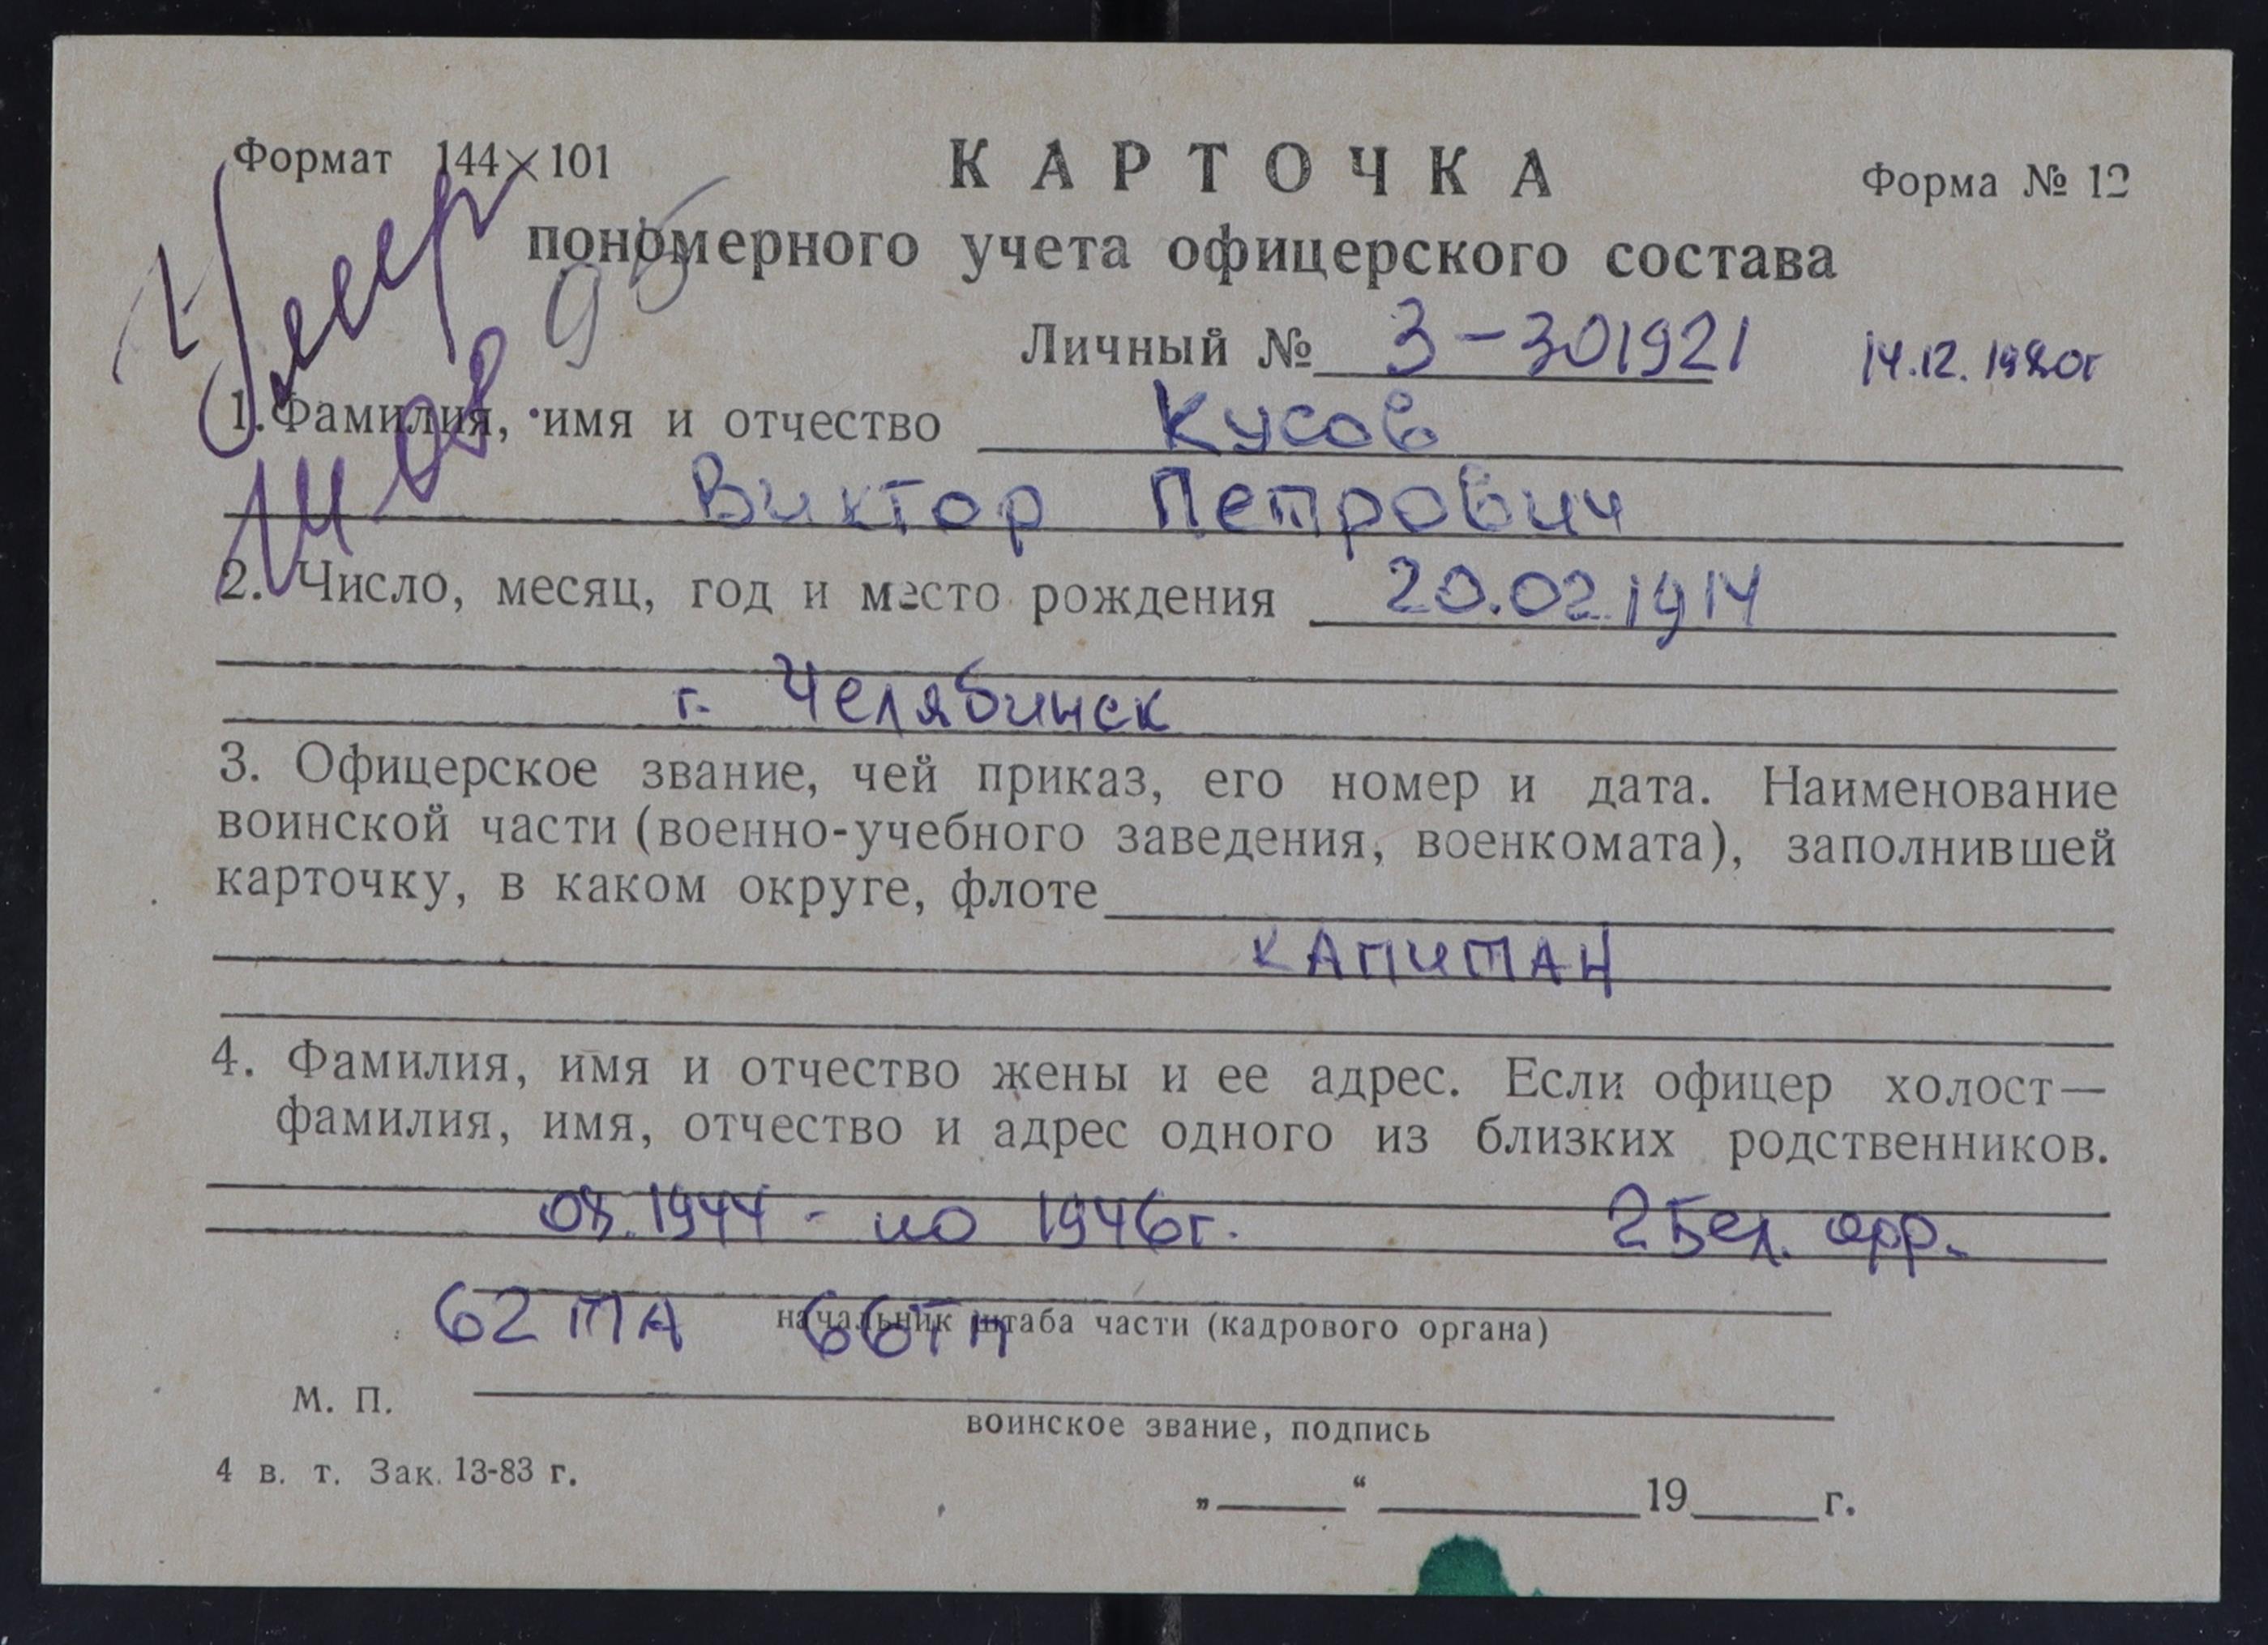 Формат 144×101
КАРТОЧКА
Форма № 12
пономерного учета офицерского состава
Умер
95
Личный № З-301921 14.12.1980г
1. Фамилия, имя и отчество Кусов
Виктор Петрович
2. Число, месяц, год и место рождения 20.02.1914
г. Челябинск
3. Офицерское звание, чей приказ, его номер и дата. Наименование
воинской части (военно-учебного заведения, военкомата), заполнившей
карточку, в каком округе, флоте
КАПИТАН
4. Фамилия, имя и отчество жены и ее адрес. Если офицер холост—
фамилия, имя, отчество и адрес одного из близких родственников.
1944 - по 1946г. 2 Бел. фр.
62 ТА 66ТП
начальник штаба части (кадрового органа)
М. П.
воинское звание, подпись
4 в. т. Зак. 13-83 г.
„ “ 19 г.